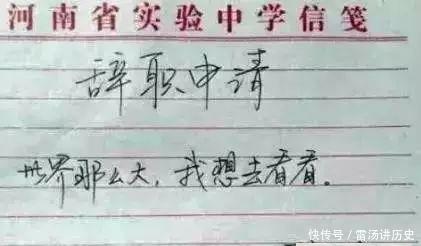 河南省实验中学信笺
辞职申请
世界那么大，我想去看看。
快传号／雷汤讲历史